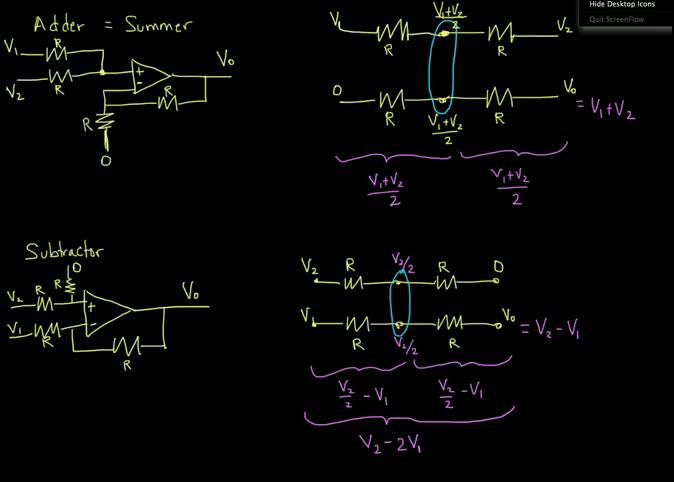 Hide Desktop Icons
Quit ScreenFlow
Adder = Summer
V₁ R
V₂ R
+
-
R
V₀
R
0
V₁ (V₁+V₂)/2 V₂
R R
0 V₀ = V₁+V₂
R (V₁+V₂)/2 R
(V₁+V₂)/2 (V₁+V₂)/2
Subtractor
0
R
V₂ R + V₀
V₁ R -
R
V₂ R V₂/2 R 0
V₁ V₀ = V₂ - V₁
R V₂/2 R
V₂/2 - V₁ V₂/2 - V₁
V₂ - 2V₁